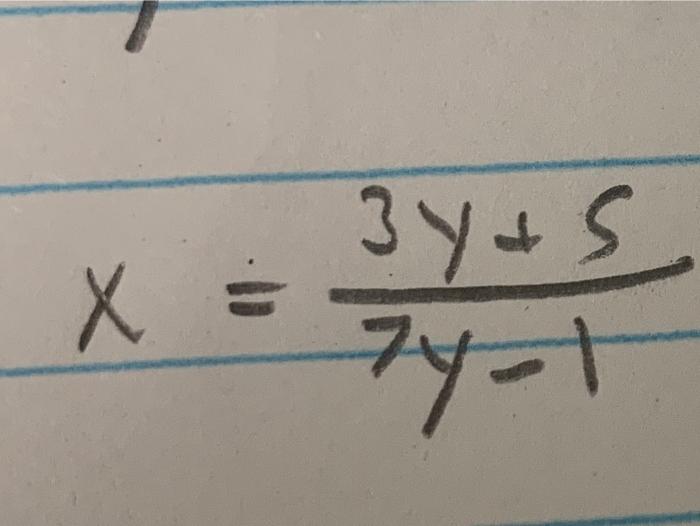 x = \frac{3y + 5}{7y - 1}